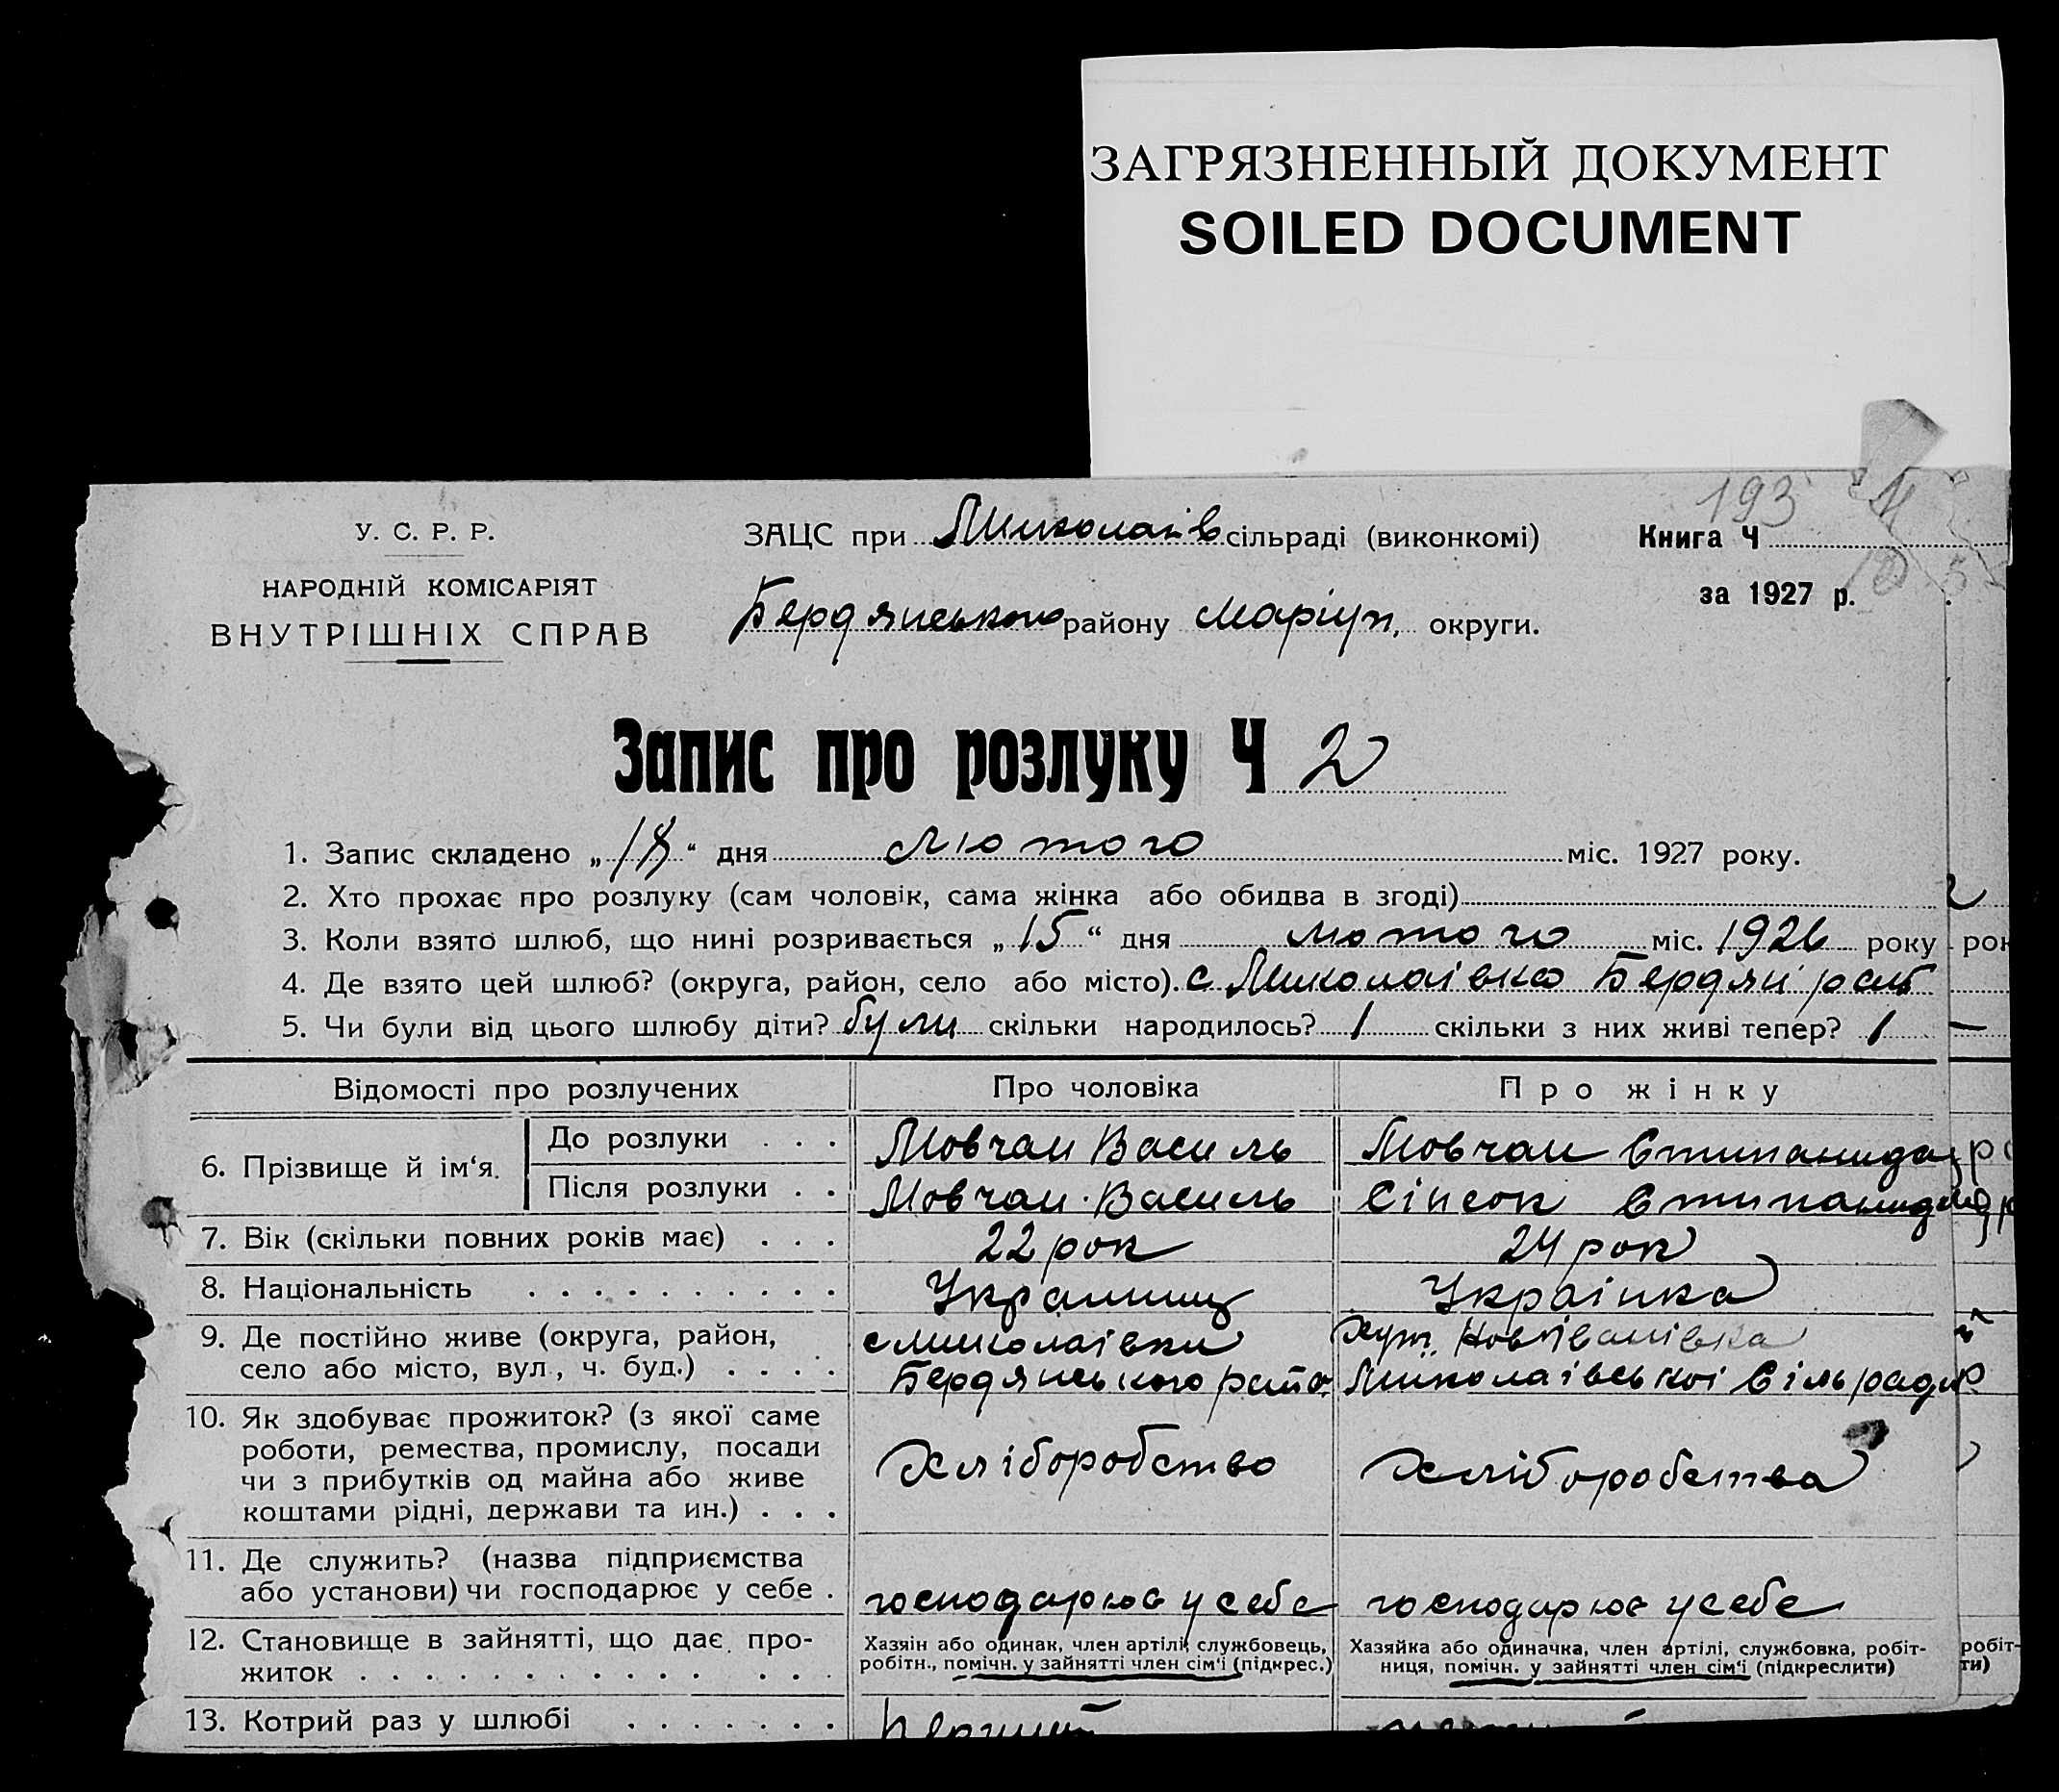 ЗАГРЯЗНЕННЫЙ ДОКУМЕНТ
SOILED DOCUMENT
193
У. С. Р. Р.
НАРОДНІЙ КОМІСАРІЯТ
ВНУТРІШНІХ СПРАВ
ЗАЦС при Миколаів сільраді (виконкомі)
Бердянського району Маріуп. округи.
Книга Ч
за 1927 р.
Запис про розлуку Ч 2
1. Запис складено „18“ дня лютого міс. 1927 року.
2. Хто прохає про розлуку (сам чоловік, сама жінка або обидва в згоді)
3. Коли взято шлюб, що нині розривається „15“ дня лютого міс. 1926 року
4. Де взято цей шлюб? (округа, район, село або місто). с Миколаівка Бердян
5. Чи були від цього шлюбу діти? були скільки народилось? 1 скільки з них живі тепер? 1
Відомості про розлучених Про чоловіка Про жінку
6. Прізвище й ім‘я. До розлуки . . . Мовчан Василь Мовчан Стипанида
Після розлуки . . Мовчан Василь Сіпсок Стипанида
7. Вік (скільки повних років має) . . . 22 рок 24 рок
8. Національність . . . . . . . . . . Украинец Украінка
9. Де постійно живе (округа, район, с Миколаівки Хут. Новоіванівка
село або місто, вул., ч. буд.) . . . . Бердянського Миколаівськоі Сільради
10. Як здобуває прожиток? (з якої саме
роботи, ремества, промислу, посади
чи з прибутків од майна або живе Хліборобство Хліборобства
коштами рідні, держави та ин.) . . .
11. Де служить? (назва підприємства
або установи) чи господарює у себе . господарює у себе господарює у себе
12. Становище в зайнятті, що дає про- Хазяін або одинак, член артілі, службовець, Хазяйка або одиначка, член артілі, службовка, робіт-
житок . . . . . . . . . . . . . . робітн., помічн. у зайнятті член сім‘і (підкрес.) ниця, помічн. у зайнятті член сім‘і (підкреслити)
13. Котрий раз у шлюбі . . . . . . . Первий